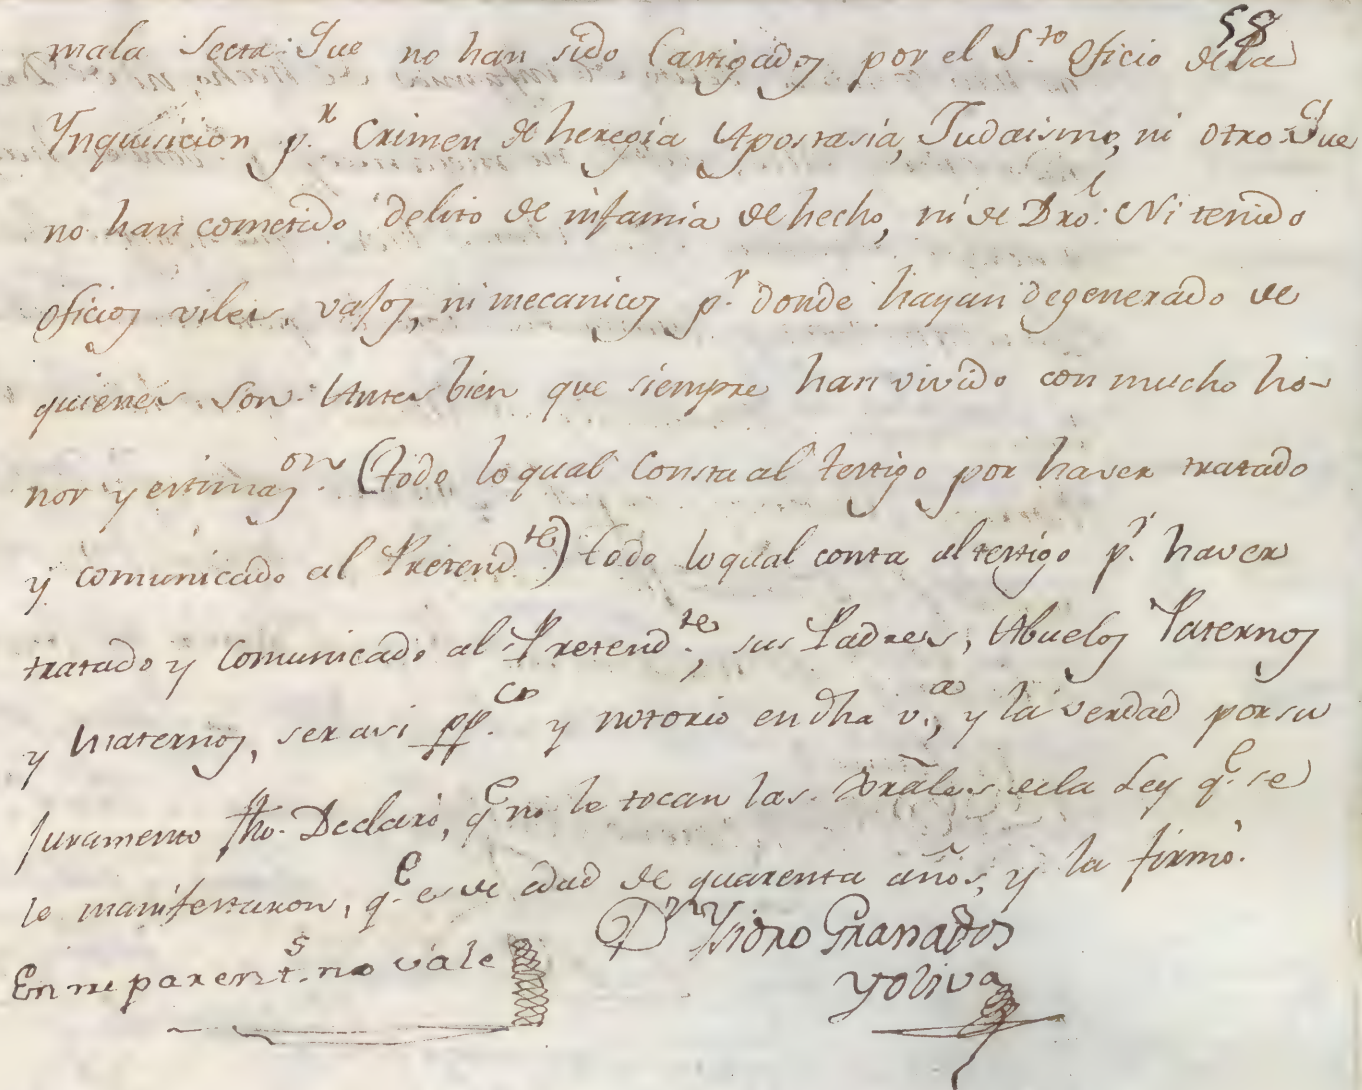 58
mala Secta: Que no han sido Castigados por el S.to Oficio de la
Ynquisicion p.r Crimen de heregia Apostasia, Judaismo, ni otro: Que
no han cometido delito de infamia de hecho, ni de Dro: Ni tenido
oficios viles, vajos, ni mecanicos p.r donde hayan degenerado de
quienes son. Antes bien que siempre han vivido con mucho ho-
nor y estimaz.on (todo lo qual Consta al testigo por haver tratado
y comunicado al Pretend.te) todo lo qual consta al testigo p.r haver
tratado y Comunicado al Pretend.te, sus Padres, Abuelos Paternos
y Maternos, ser asi pp.co y notorio en dha v.a, y la verdad por su
Juramento fho. Declaró, q.e no le tocan las Grales de la Ley q.e se
le manifestaron, q.e es de edad de quarenta años, y la firmó.
Dn Ysidro Granados
y oliva
Entre parent.s no vale